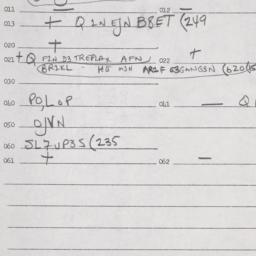 011 — 012 —
013 + Q 1N EJN B8ET (249
020 +
021 + Q F2N D3 TREPLAX AFN 022 +
BR1KL - HG MJH AR1F G3GWNGSN (620(15
030
040 PO,LOP 041 — Q
050 OJVN
060 SL7UP3S (235
061 + 062 —